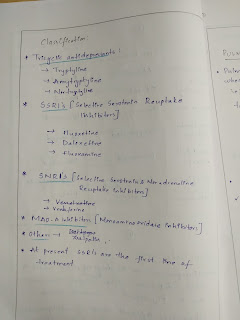 Classification:
* Tricyclic antidepressants:
→ Tryptyline
→ Amytryptyline
→ Nortryptyline
* SSRI's [Selective Serotonin Reuptake
Inhibitors]
→ Fluoxetine
→ Fluvoxamine
* SNRI's [Selective Serotonin & Noradrenaline
Reuptake Inhibitors]
→ Venlafaxine
* MAO-A Inhibitors [Monoamine oxidase Inhibitors]
* Others →
* At present SSRIs are the first line of
treatment